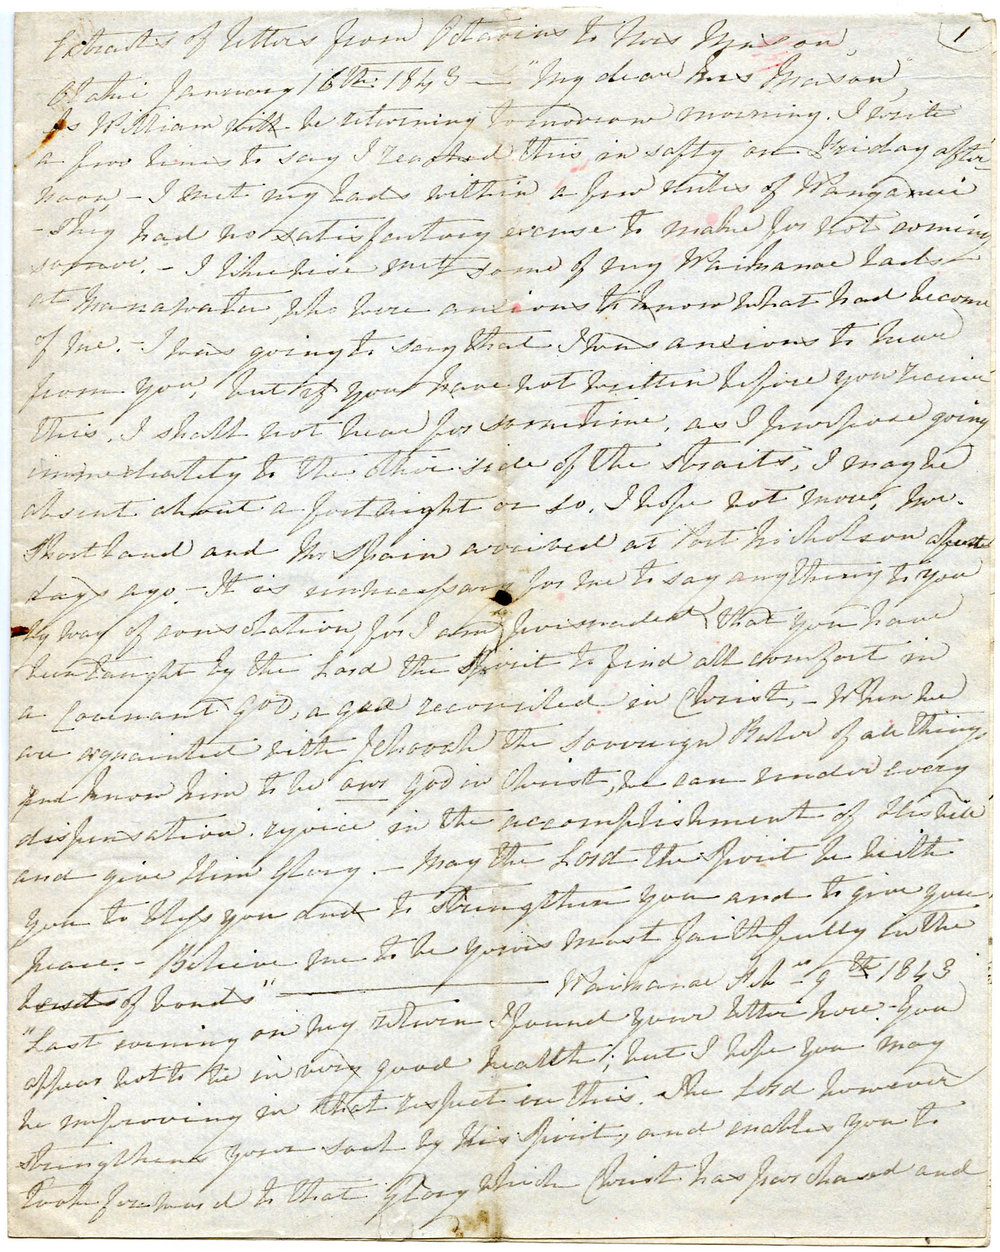 1
Extracts of letters from Octavius to Mrs Mason,
Otaki January 16th 1843 — "My dear Mrs Mason"
As William will be returning tomorrow morning. I write
a few lines to say I reached this in safty on Friday after
noon - I met my lads within a few miles of Wanganui
- They had no satisfactory excuse to make for not coming
sooner. - I likewise met some of my Waikanae lads
at Manawatu who were anxious to know what had become
of me. - I was going to say that I was anxious to hear
from you, but if you have not written before you receive
this, I shall not hear for sometime, as I purpose going
immediately to the other side of the straits, I may be
absent about a fortnight or so, I hope not more, Mr.
Shortland and Mr Spain arrived at Port Nicholson a few
days ago - It is unnecessary for me to say anything to you
by way of consolation for I am persuaded that you have
been taught by the Lord the Spirit to find all comfort in
a Covenant God, a God reconciled in Christ, - When we
are acquainted with Jehovah the sovereign Ruler of all things
and know him to be our God in Christ, we can under every
dispensation rejoice in the accomplishment of His will
and give Him Glory. - May the Lord the Spirit be with
you to bless you and to strengthen you and to give you
peace. - Believe me to be yours most faithfully in the
best of bonds" — Waikanae Feb 9th 1843
"Last evening on my return I found your letter here - You
appear not to be in very good health; but I hope you may
be improving in that respect ere this. The Lord however
strengthens your soul by His Spirit, and enables you to
look forward to that Glory which Christ has purchased and